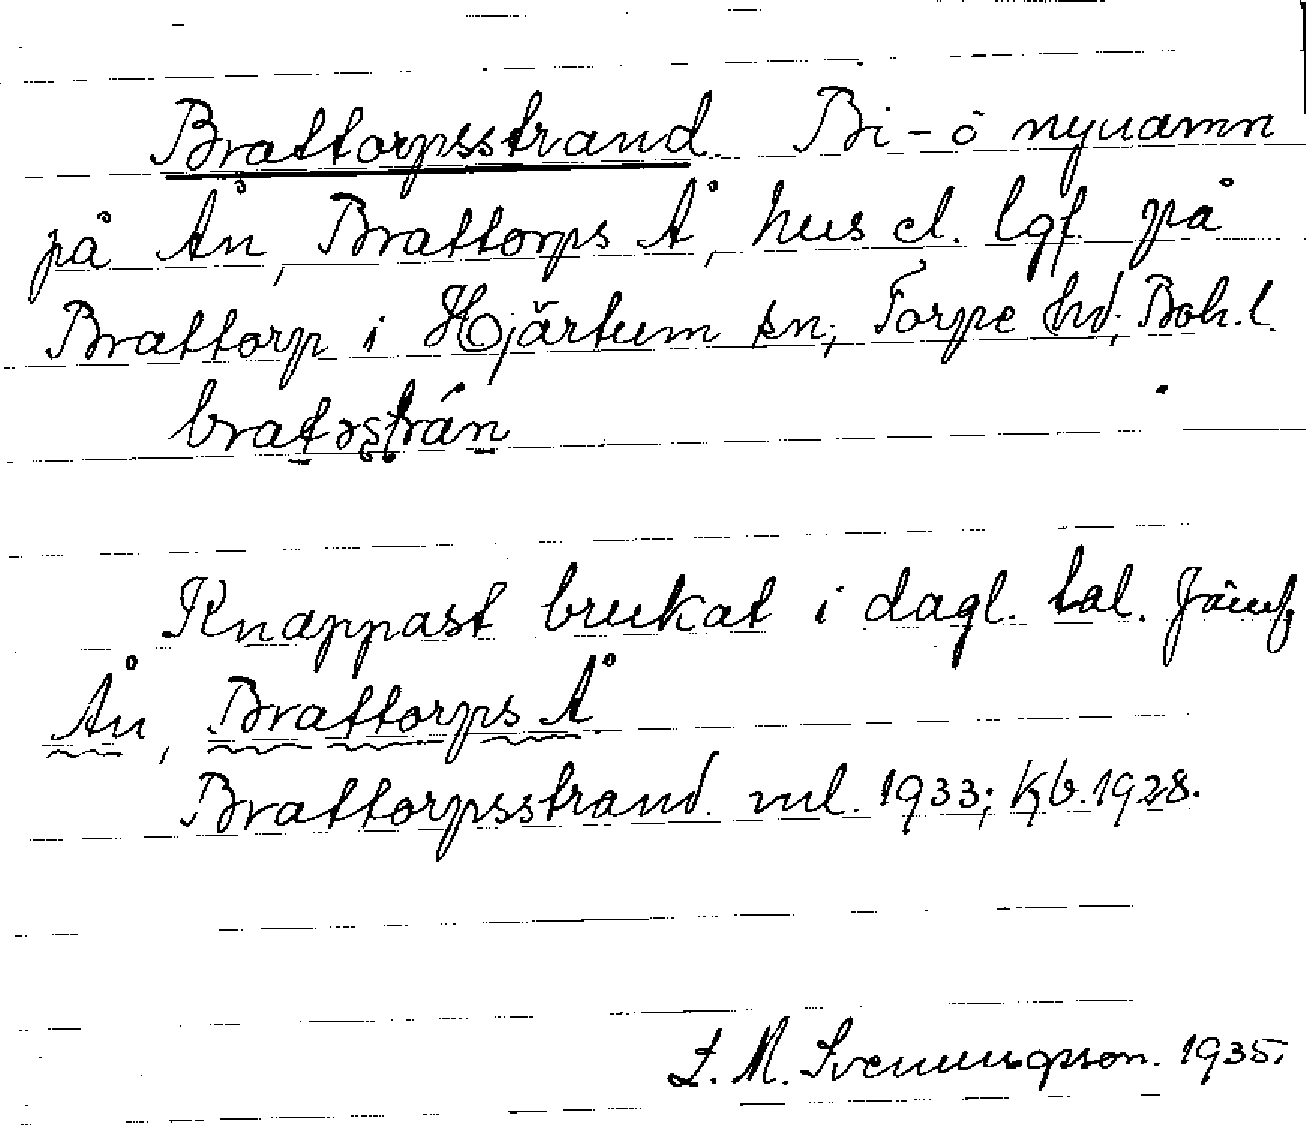 Brattorpsstrand. Bi- o nynamn
på Ån, Brattorps Å, hus el. lgf. på
Brattorp i Hjärtum sn, Torpe hd, Boh.l.
Knappast brukat i dagl. tal. Jämf.
Ån, Brattorps Å.
Brattorpsstrand. ml. 1933; Kb. 1928.
M. Svenungsson. 1935.